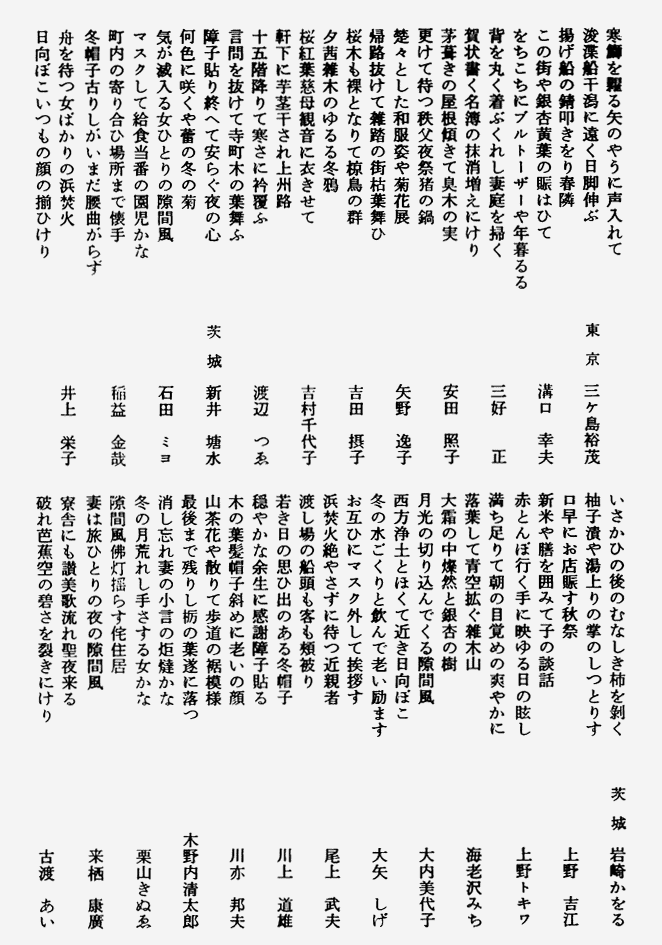 寒鰤を糶る矢のやうに声入れて
浚渫船干潟に遠く日脚伸ぶ
東京 三ケ島裕茂
揚げ船の錆叩きをり春隣
この街や銀杏黄葉の賑はひて
溝口 幸夫
をちこちにブルトーザーや年暮るる
背を丸く着ぶくれし妻庭を掃く
三好 正
賀状書く名簿の抹消増えにけり
茅葺きの屋根傾きて臭木の実
安田 照子
更けて待つ秩父夜祭猪の鍋
楚々とした和服姿や菊花展
矢野 逸子
帰路抜けて雑踏の街枯葉舞ひ
桜木も裸となりて椋鳥の群
吉田 摂子
夕茜雑木のゆるる冬鴉
桜紅葉慈母観音に衣きせて
吉村千代子
軒下に芋茎干され上州路
十五階降りて寒さに衿覆ふ
渡辺 つゑ
言問を抜けて寺町木の葉舞ふ
障子貼り終へて安らぐ夜の心
茨城 新井 塘水
何色に咲くや蕾の冬の菊
気が滅入る女ひとりの隙間風
石田 ミヨ
マスクして給食当番の園児かな
町内の寄り合ひ場所まで懐手
稲益 金哉
冬帽子古りしがいまだ腰曲がらず
舟を待つ女ばかりの浜焚火
井上 栄子
日向ぼこいつもの顔の揃ひけり
いさかひの後のむなしき柿を剝く
茨城 岩崎かをる
柚子漬や湯上りの掌のしつとりす
口早にお店賑す秋祭
上野 吉江
新米や膳を囲みて子の談話
赤とんぼ行く手に映ゆる日の眩し
上野トキワ
満ち足りて朝の目覚めの爽やかに
落葉して青空拡ぐ雑木山
海老沢みち
大霜の中燦然と銀杏の樹
月光の切り込んでくる隙間風
大内美代子
西方浄土とはくて近き日向ぼこ
冬の水ごくりと飲んで老い励ます
大矢 しげ
お互ひにマスク外して挨拶す
浜焚火絶やさずに待つ近親者
尾上 武夫
渡し場の船頭も客も頬被り
若き日の思ひ出のある冬帽子
川上 道雄
穏やかな余生に感謝障子貼る
木の葉髪帽子斜めに老いの顔
川亦 邦夫
山茶花や散りて歩道の裾模様
最後まで残りし栃の葉遂に落つ
木野内清太郎
消し忘れ妻の小言の炬燵かな
冬の月荒れし手さする女かな
栗山きぬゑ
隙間風佛灯揺らす侘住居
妻は旅ひとりの夜の隙間風
来栖 康廣
寮舎にも讃美歌流れ聖夜来る
破れ芭蕉空の碧さを裂きにけり
古渡 あい